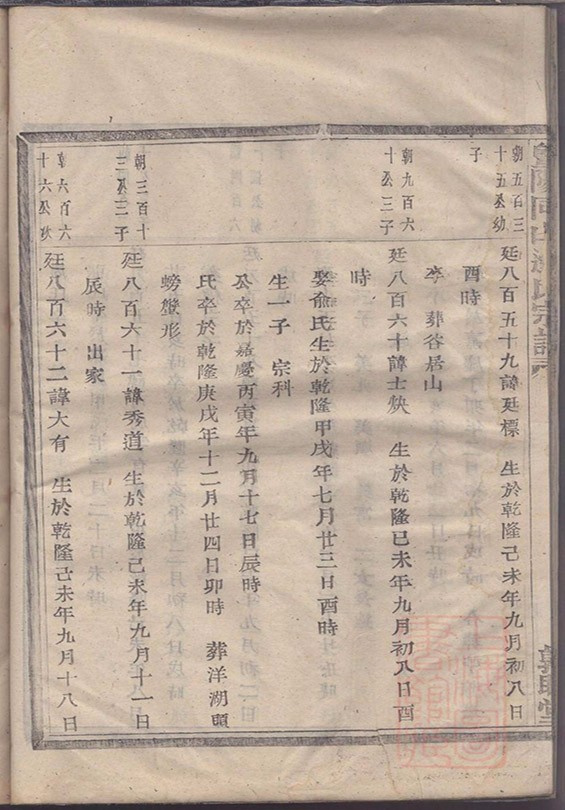 朝五百三
十五公幼
子
廷八百五十九諱廷標 生於乾隆己未年九月初八日
酉時
李 葬谷居山
朝九百六
十公三子
廷八百六十諱士炔 生於乾隆己未年九月初八日酉
時
娶俞氏生於乾隆甲戌年七月廿三日酉時
生一子 宗科
公卒於嘉慶丙寅年九月十七日辰時
氏卒於乾隆庚戌年十二月廿四日卯時 葬洋湖
螃蟹形
朝三百十
三公三子
廷八百六十一諱秀道 生於乾隆己未年九月十一日
辰時 出家
朝六百六
十六公次
廷八百六十二諱大有 生於乾隆己未年九月十八日
氏宗譜